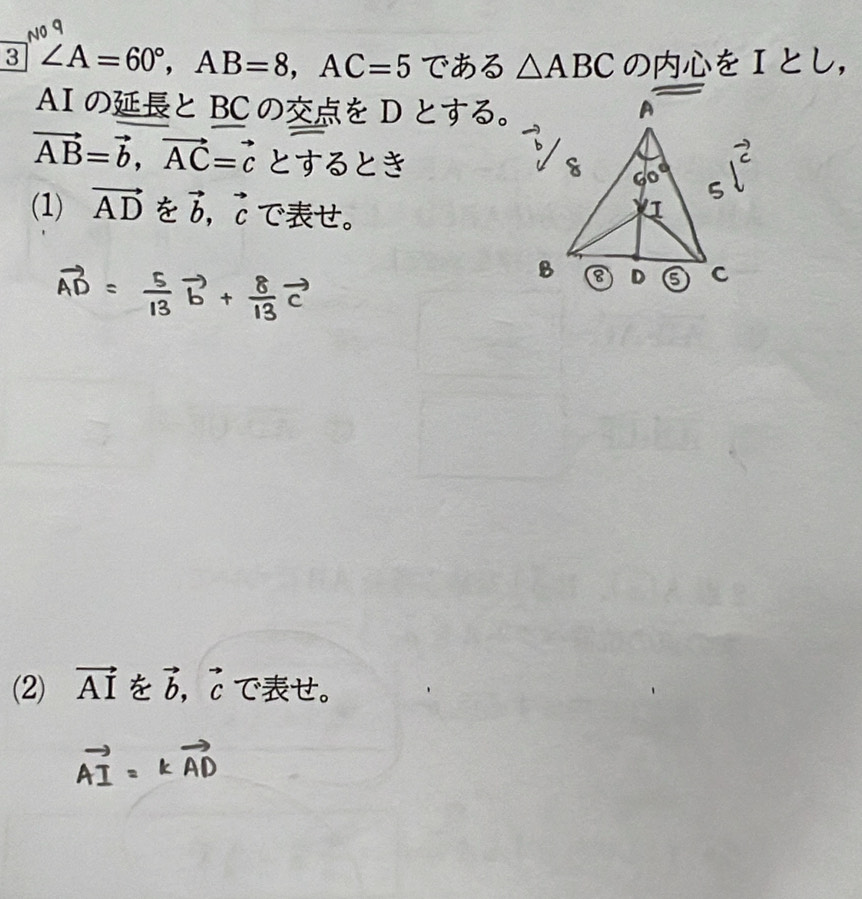 NO 9
3 ∠A=60°, AB=8, AC=5 である △ABC の内心を I とし,
AI の延長と BC の交点を D とする。
→AB=→b, →AC=→c とするとき
(1) →AD を →b, →c で表せ。
→AD = 5/13 →b + 8/13 →c
A
→b 8
60°
5 →c
I
B ⑧ D ⑤ C
(2) →AI を →b, →c で表せ。
→AI = k →AD